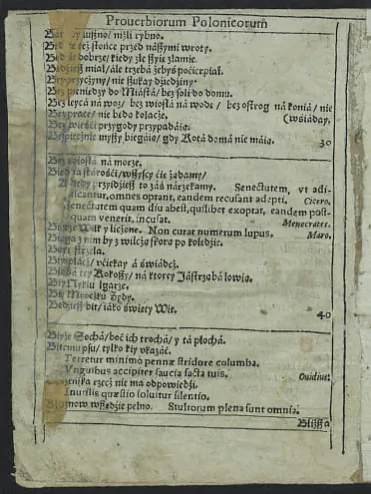 Prouerbiorum Polonicorum
luźno/ niżli rybno.
też słońce przed nászymi wroty.
dobrze/ kiedy źle zszyie złamie.
miał/ ále trzebá żebyś pocierpiał.
przyczyny/ nie szukay dziedziny.
Bez pieniędzy do Miástá/ bez soli do domu.
Bez leycá ná woz/ bez wiosłá ná wodę/ bez ostrog ná koniá/ nie
(wśiáday.
Bez prace/ nie będą kołacze.
Bez wieści przygody przypadáią.
Bezpiecznie myszy biegáią/ gdy Kotá domá nie máią. 30
Bez wiosłá ná morze.
stárości/ wszyscy ćie żądamy/
A kiedy przyidziesz to záś nárzekamy. Senectutem, vt adi-
piscantur, omnes optant, eandem recusant adepti. Cicero.
Senectutem quam diu abest, quilibet exoptat, eandem post-
quam venerit, incusat. Menecrates.
Wilk y liczone. Non curat numerum lupus. Maro.
z nim by z wilczą skorą po kolędzie.
strzelá.
vćiekay á świádcz.
tey Kokoszy/ ná ktorey Jástrząbá łowią.
łgarze.
bit/ iáko święty Wit. 40
Sochá/ boć ich trochá/ y tá płochá.
psu/ tylko kiy vkazáć.
Terretur minimo pennæ stridore columba.
Vnguibus accipiter saucia facta tuis. Ouidius.
rzecz nie ma odpowiedzi.
Inutilis quæstio soluitur silentio.
wszędzie pełno. Stultorum plena sunt omnia.
Bliższa